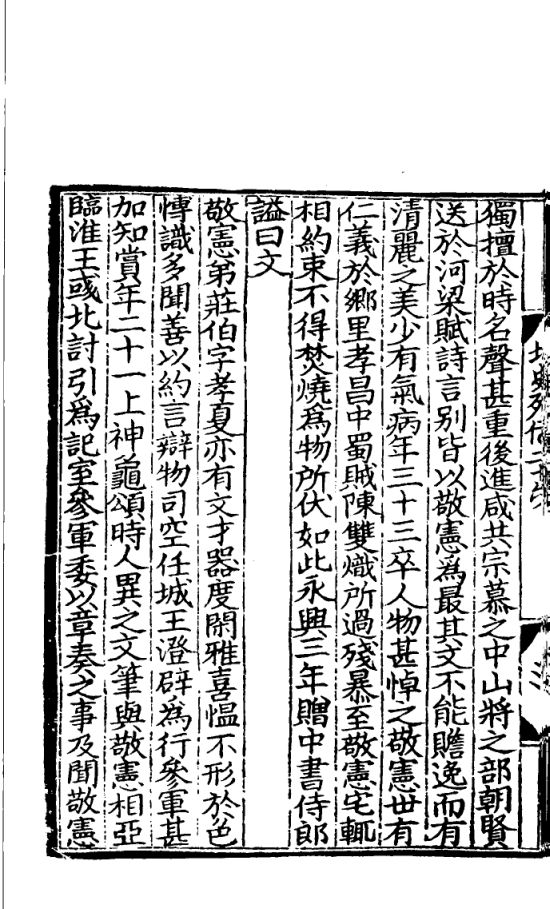 獨擅於時名聲甚重後進咸共宗慕之中山將之部朝賢
送於河梁賦詩言別皆以敬憲爲最其文不能贍逸而有
清麗之美少有氣病年三十三卒人物甚悼之敬憲世有
仁義於鄉里孝昌中蜀賊陳雙熾所過殘暴至敬憲宅輒
相約束不得焚燒爲物所伏如此永興三年贈中書侍郎
謚曰文
敬憲弟莊伯字孝夏亦有文才器度閑雅喜慍不形於色
愽識多聞善以約言辯物司空任城王澄辟爲行參軍甚
加知賞年二十一上神龜頌時人異之文筆與敬憲相亞
臨淮王彧北討引爲記室參軍委以章奏之事及聞敬憲